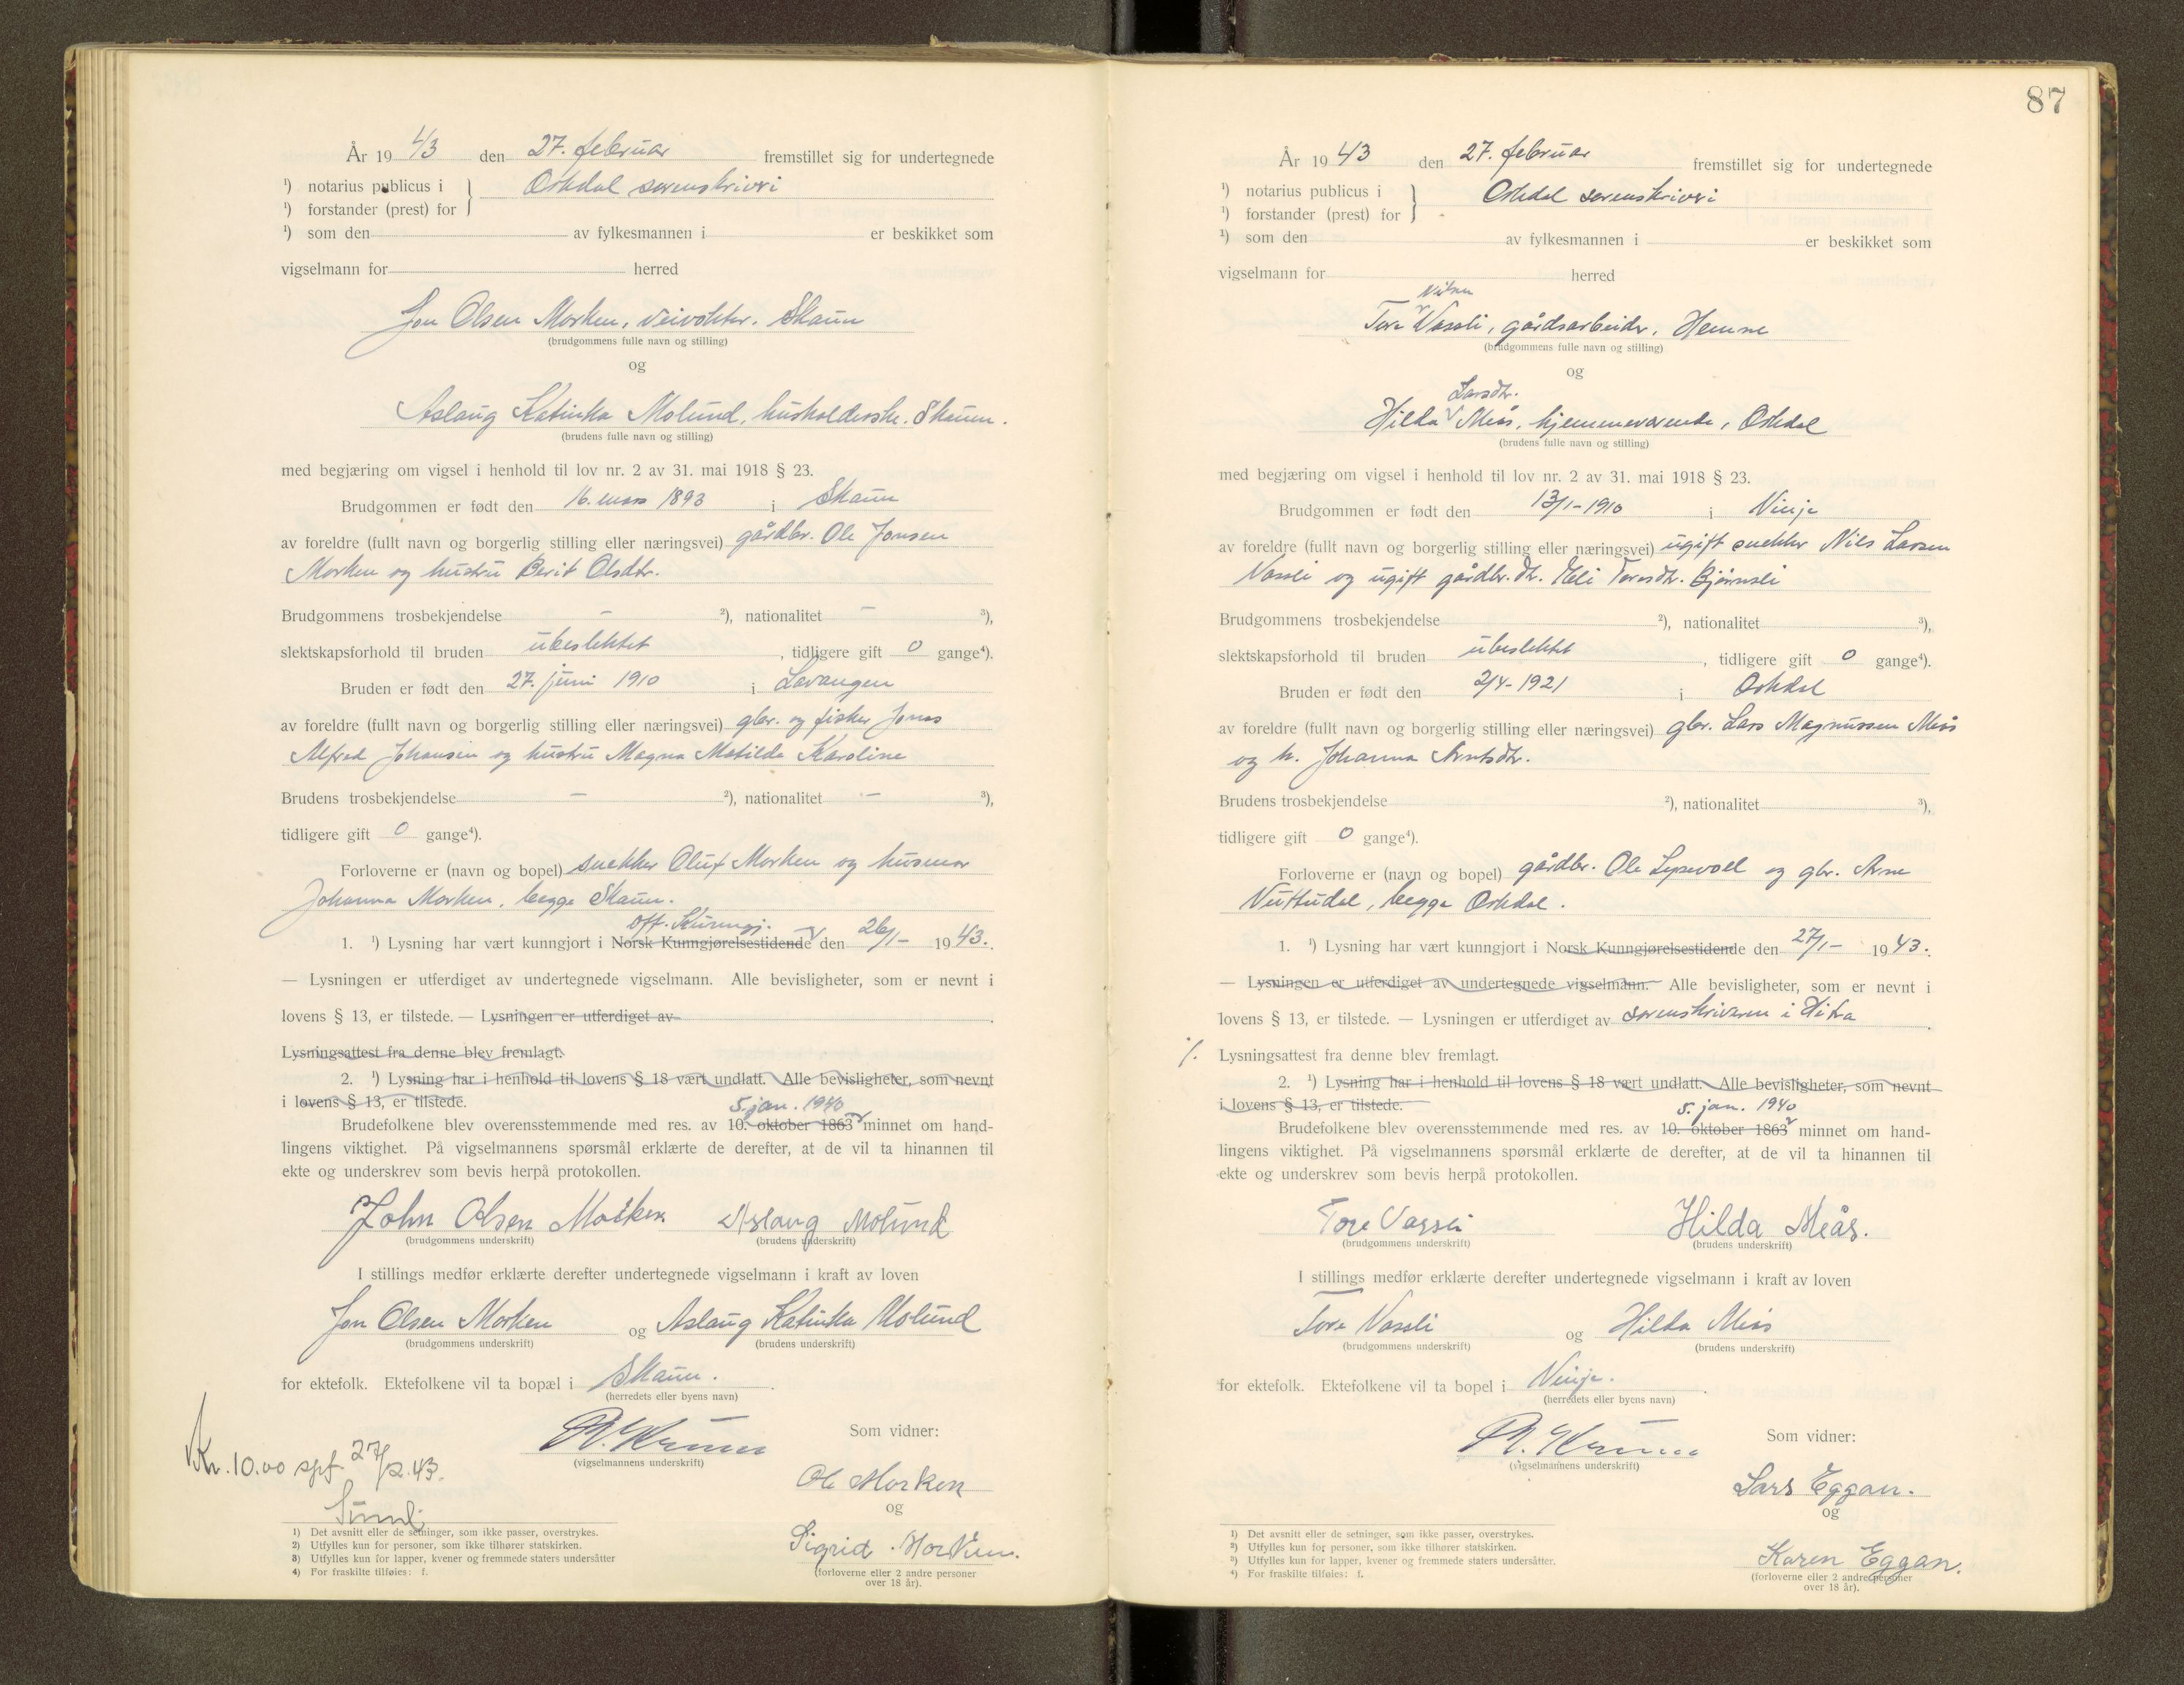 År 19 43 den 27. februar fremstillet sig for undertegnede
¹) notarius publicus i } Orkdal sorenskriveri
¹) forstander (prest) for
¹) som den av fylkesmannen i er beskikket som
vigselmann for herred
Jon Olsen Morken, veivokter. Skaun
(brudgommens fulle navn og stilling)
og
Aslaug Katinka Molund, husholderske. Skaun.
(brudens fulle navn og stilling)
med begjæring om vigsel i henhold til lov nr. 2 av 31. mai 1918 § 23.
Brudgommen er født den 16. mars 1893 i Skaun
av foreldre (fullt navn og borgerlig stilling eller næringsvei) gårdbr. Ole Jonsen
Morken og hustru Berit Olsdtr.
Brudgommens trosbekjendelse – ²), nationalitet – ³),
slektskapsforhold til bruden ubeslektet , tidligere gift 0 gange⁴).
Bruden er født den 27. juni 1910 i Lavangen
av foreldre (fullt navn og borgerlig stilling eller næringsvei) gbr. og fisker Jonas
Alfred Johansen og hustru Magna Matilde Karoline
Brudens trosbekjendelse – ²), nationalitet – ³),
tidligere gift 0 gange⁴).
Forloverne er (navn og bopel) snekker Oluf Morken og husmor
Johanna Morken, begge Skaun.
off. Kunngj.
1. ¹) Lysning har vært kunngjort i Norsk Kunngjørelsestidende den 26/1- 1943.
— Lysningen er utferdiget av undertegnede vigselmann. Alle bevisligheter, som er nevnt i
lovens § 13, er tilstede. — Lysningen er utferdiget av
Lysningsattest fra denne blev fremlagt.
2. ¹) Lysning har i henhold til lovens § 18 vært undlatt. Alle bevisligheter, som nevnt
i lovens § 13, er tilstede.
5. jan. 1940
Brudefolkene blev overensstemmende med res. av 10. oktober 1863 minnet om hand-
lingens viktighet. På vigselmannens spørsmål erklærte de derefter, at de vil ta hinannen til
ekte og underskrev som bevis herpå protokollen.
John Olsen Morken Aslaug Molund
(brudgommens underskrift) (brudens underskrift)
I stillings medfør erklærte derefter undertegnede vigselmann i kraft av loven
Jon Olsen Morken og Aslaug Katinka Molund
(brudgommens underskrift) (brudens underskrift)
for ektefolk. Ektefolkene vil ta bopæl i Skaun.
(herredets eller byens navn)
Som vidner:
(vigselmannens underskrift)
Kr. 10.00 27/2.43.
Ole Morken
og
Sigrid Morken.
(forloverne eller 2 andre personer
over 18 år).
1) Det avsnitt eller de setninger, som ikke passer, overstrykes.
2) Utfylles kun for personer, som ikke tilhører statskirken.
3) Utfylles kun for lapper, kvener og fremmede staters undersåtter
4) For fraskilte tilføies: f.
87
År 19 43 den 27. februar fremstillet sig for undertegnede
¹) notarius publicus i } Orkdal sorenskriveri
¹) forstander (prest) for
¹) som den av fylkesmannen i er beskikket som
vigselmann for herred
Nilsen
Tore Vassli, gårdsarbeider, Hemne
(brudgommens fulle navn og stilling)
og
Larsdtr.
Hilda Meås, hjemmeværende, Orkdal
(brudens fulle navn og stilling)
med begjæring om vigsel i henhold til lov nr. 2 av 31. mai 1918 § 23.
Brudgommen er født den 13/1-1910 i Vinje
av foreldre (fullt navn og borgerlig stilling eller næringsvei) ugift snekker Nils Larsen
Vassli og ugift gårdbr.dtr. Eli Toresdtr. Bjørnsli
Brudgommens trosbekjendelse ²), nationalitet ³),
slektskapsforhold til bruden ubeslektet , tidligere gift 0 gange⁴).
Bruden er født den 2/4-1921 i Orkdal
av foreldre (fullt navn og borgerlig stilling eller næringsvei) gbr. Lars Magnussen Meås
og h. Johanna Arntsdtr.
Brudens trosbekjendelse ²), nationalitet ³),
tidligere gift 0 gange⁴).
Forloverne er (navn og bopel) gårdbr. Ole Lysevoll og gbr. Arne
Vuttudal, begge Orkdal.
1. ¹) Lysning har vært kunngjort i Norsk Kunngjørelsestidende den 27/1- 1943.
— Lysningen er utferdiget av undertegnede vigselmann. — Alle bevisligheter, som er nevnt i
lovens § 13, er tilstede. — Lysningen er utferdiget av sorenskriveren i Hitra .
⁒ Lysningsattest fra denne blev fremlagt.
2. ¹) Lysning har i henhold til lovens § 18 vært undlatt. Alle bevisligheter, som nevnt
i lovens § 13, er tilstede.
5. jan. 1940
Brudefolkene blev overensstemmende med res. av 10. oktober 1863 minnet om hand-
lingens viktighet. På vigselmannens spørsmål erklærte de derefter, at de vil ta hinannen til
ekte og underskrev som bevis herpå protokollen.
Tore Vassli Hilda Meås.
(brudgommens underskrift) (brudens underskrift)
I stillings medfør erklærte derefter undertegnede vigselmann i kraft av loven
Tore Vassli og Hilda Meås
(brudgommens underskrift) (brudens underskrift)
for ektefolk. Ektefolkene vil ta bopel i Vinje.
(herredets eller byens navn)
Som vidner:
(vigselmannens underskrift)
Lars Eggan.
og
Karen Eggan.
(forloverne eller 2 andre personer
over 18 år).
1) Det avsnitt eller de setninger, som ikke passer, overstrykes.
2) Utfylles kun for personer, som ikke tilhører statskirken.
3) Utfylles kun for lapper, kvener og fremmede staters undersåtter.
4) For fraskilte tilføies: f.